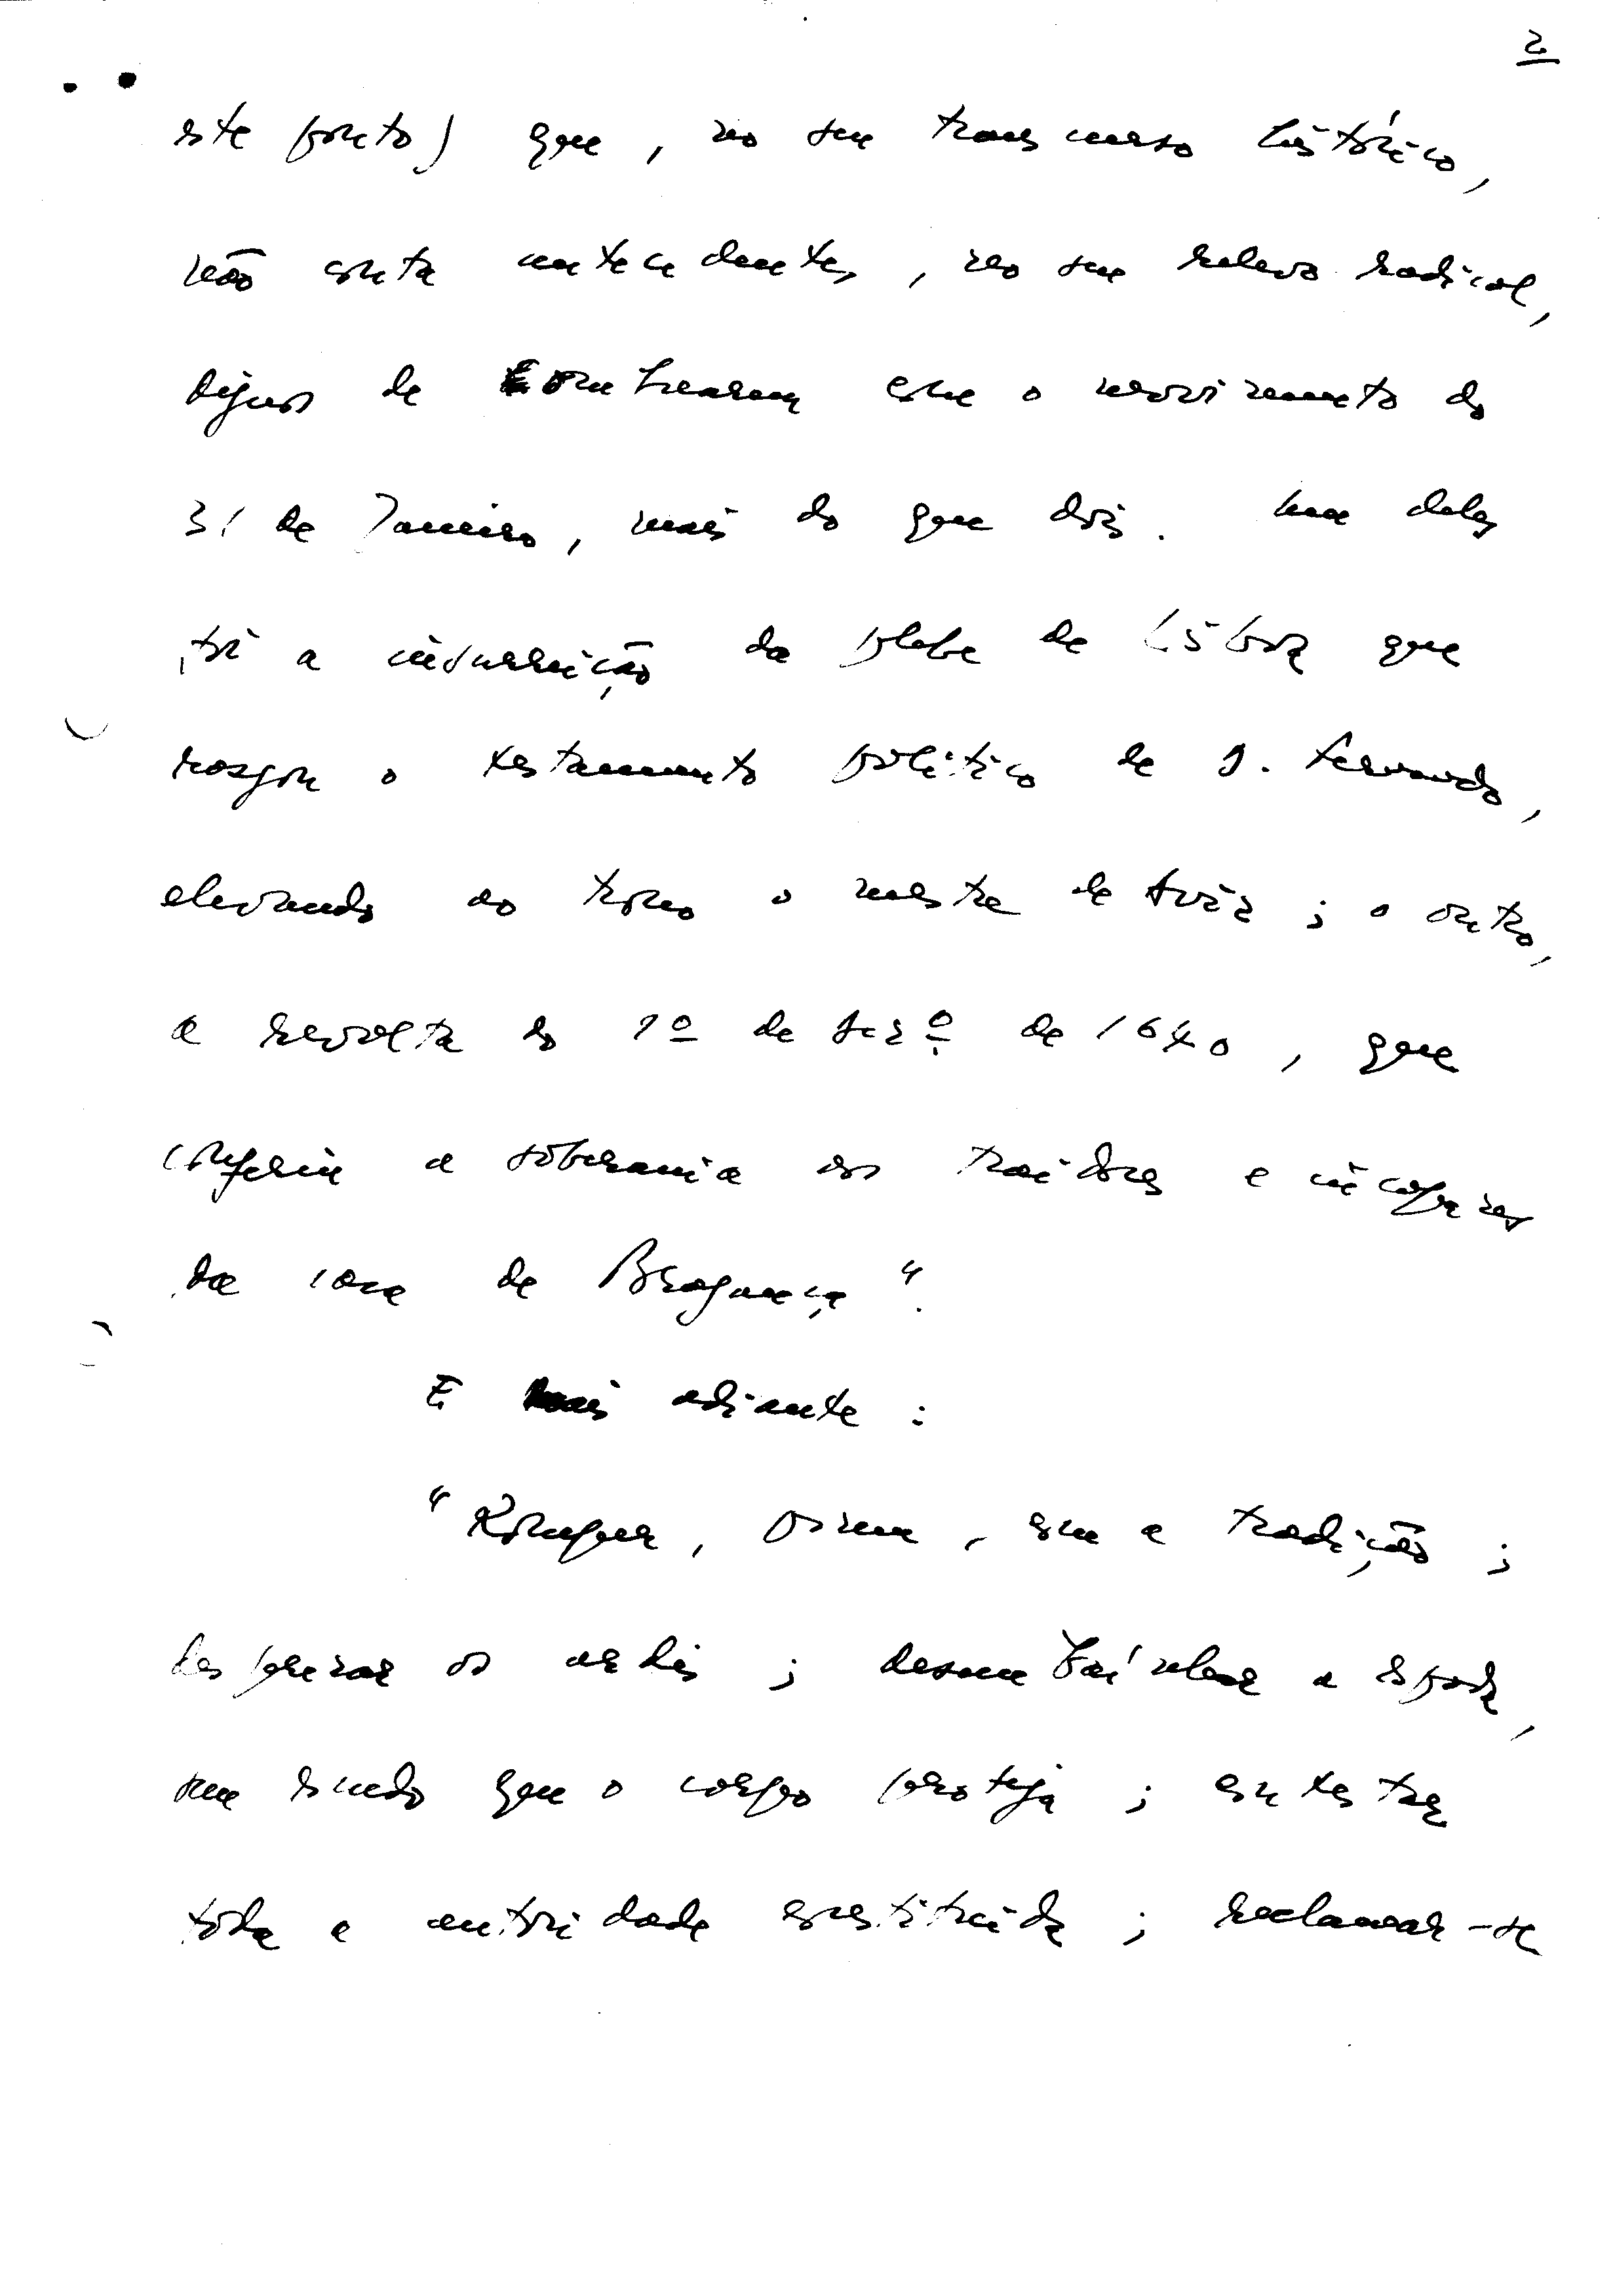 2
este ponto) que, no seu transcurso histórico,
não conta antecedentes, no seu relevo radical,
dignos de ombrearem com o movimento do
31 de Janeiro, mais do que dois. Um deles
foi a insurreição da plebe de Lisboa que
rasgou o testamento político de D. Fernando,
elevando ao trono o mestre de Aviz; o outro,
a revolta do 1º de Dezº de 1640, que
conferiu a soberania aos traidores e incapazes
da casa de Bragança".
E mais adiante:
"Romper, assim, com a tradição;
desprezar os ardis; desembainhar a espada,
sem escudo que o corpo proteja; contestar
toda a autoridade constituída; reclamar-se